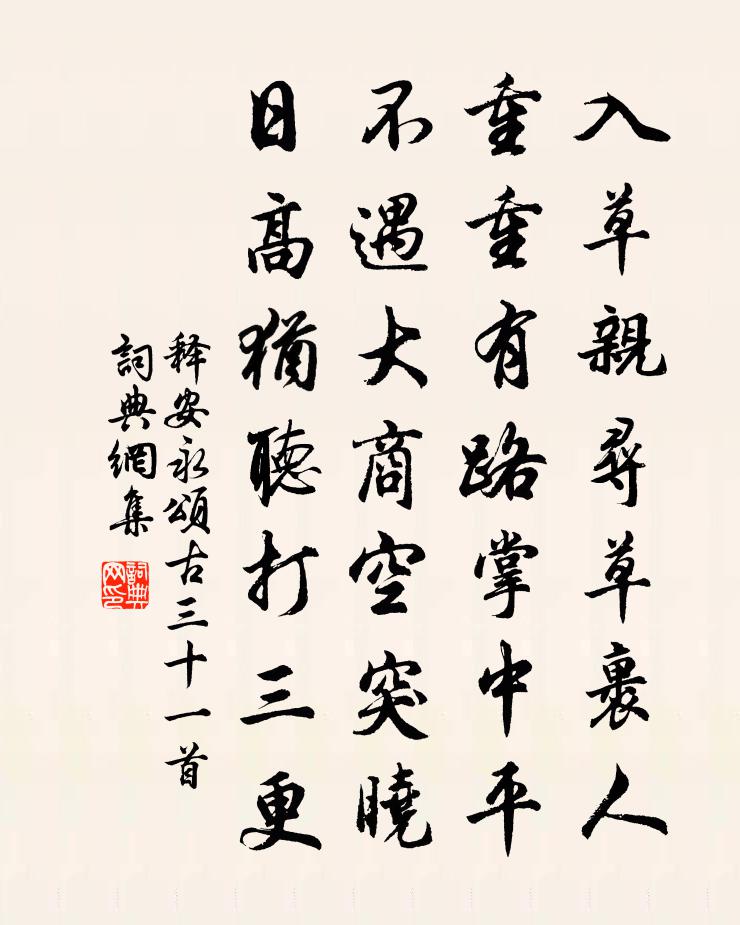 入草親尋草裹人
重重有路掌中平
不遇大商空突曉
日高猶聽打三更
释安永頌古三十一首
詞典網集
詞典
网印